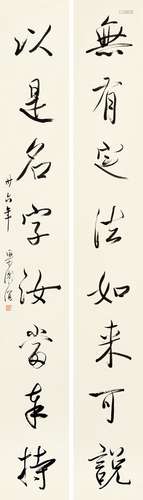 無有定法如来可說
以是名字汝當奉持
廿六年